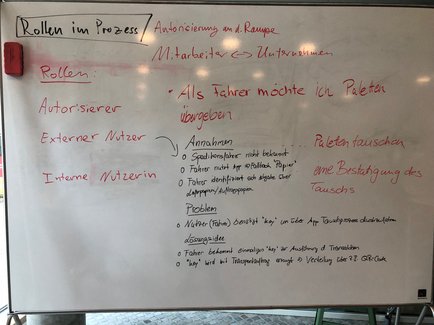 Rollen im Prozess
Autorisierung an d. Rampe
Mitarbeiter <-> Unternehmen
Rollen:
• Als Fahrer möchte ich Paleten
übergeben
Autorisierer
Externer Nutzer
Interne Nutzerin
... Paleten tauschen
eine Bestätigung des
Tauschs
Annahmen
o Speditionsfahrer nicht bekannt
o Fahrer nutzt App => Fallback "Papier"
o Fahrer identifiziert sich über
Problem
o Nutzer (Fahrer) benötigt "key" um über App Tauschprozess durchzuführen
Lösungsidee
o Fahrer bekommt einmaligen "key" zur Ausführung d. Transaktion
o "key" wird mit Transportauftrag erzeugt => Verteilung über z.B. QR-Code